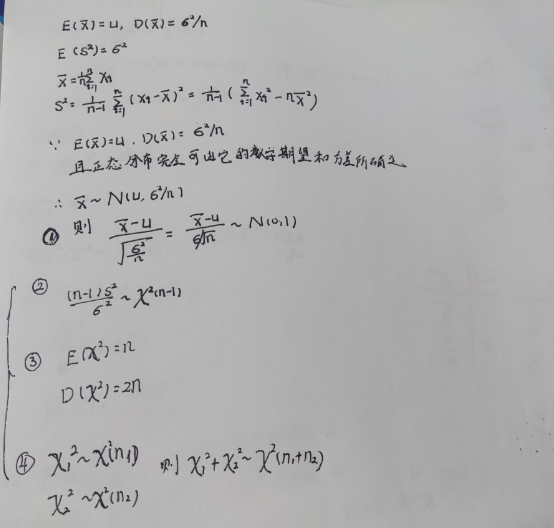 E(x̄)=u, D(x̄)=6²/n
E(S²)=6²
x̄=1/n Σⁿᵢ₌₁ xᵢ
S²=1/(n-1) Σⁿᵢ₌₁ (xᵢ-x̄)²=1/(n-1) (Σⁿᵢ₌₁ xᵢ²-nx̄²)
∵ E(x̄)=u, D(x̄)=6²/n
且正态分布完全可由它的数学期望和方差所确定
∴ x̄~N(u, 6²/n)
① 则 (x̄-u)/√(6²/n)=(x̄-u)/(6/√n)~N(0,1)
② (n-1)S²/6²~χ²(n-1)
③ E(χ²)=n
D(χ²)=2n
④ χ₁²~χ²(n₁) 则 χ₁²+χ₂²~χ²(n₁+n₂)
χ₂²~χ²(n₂)